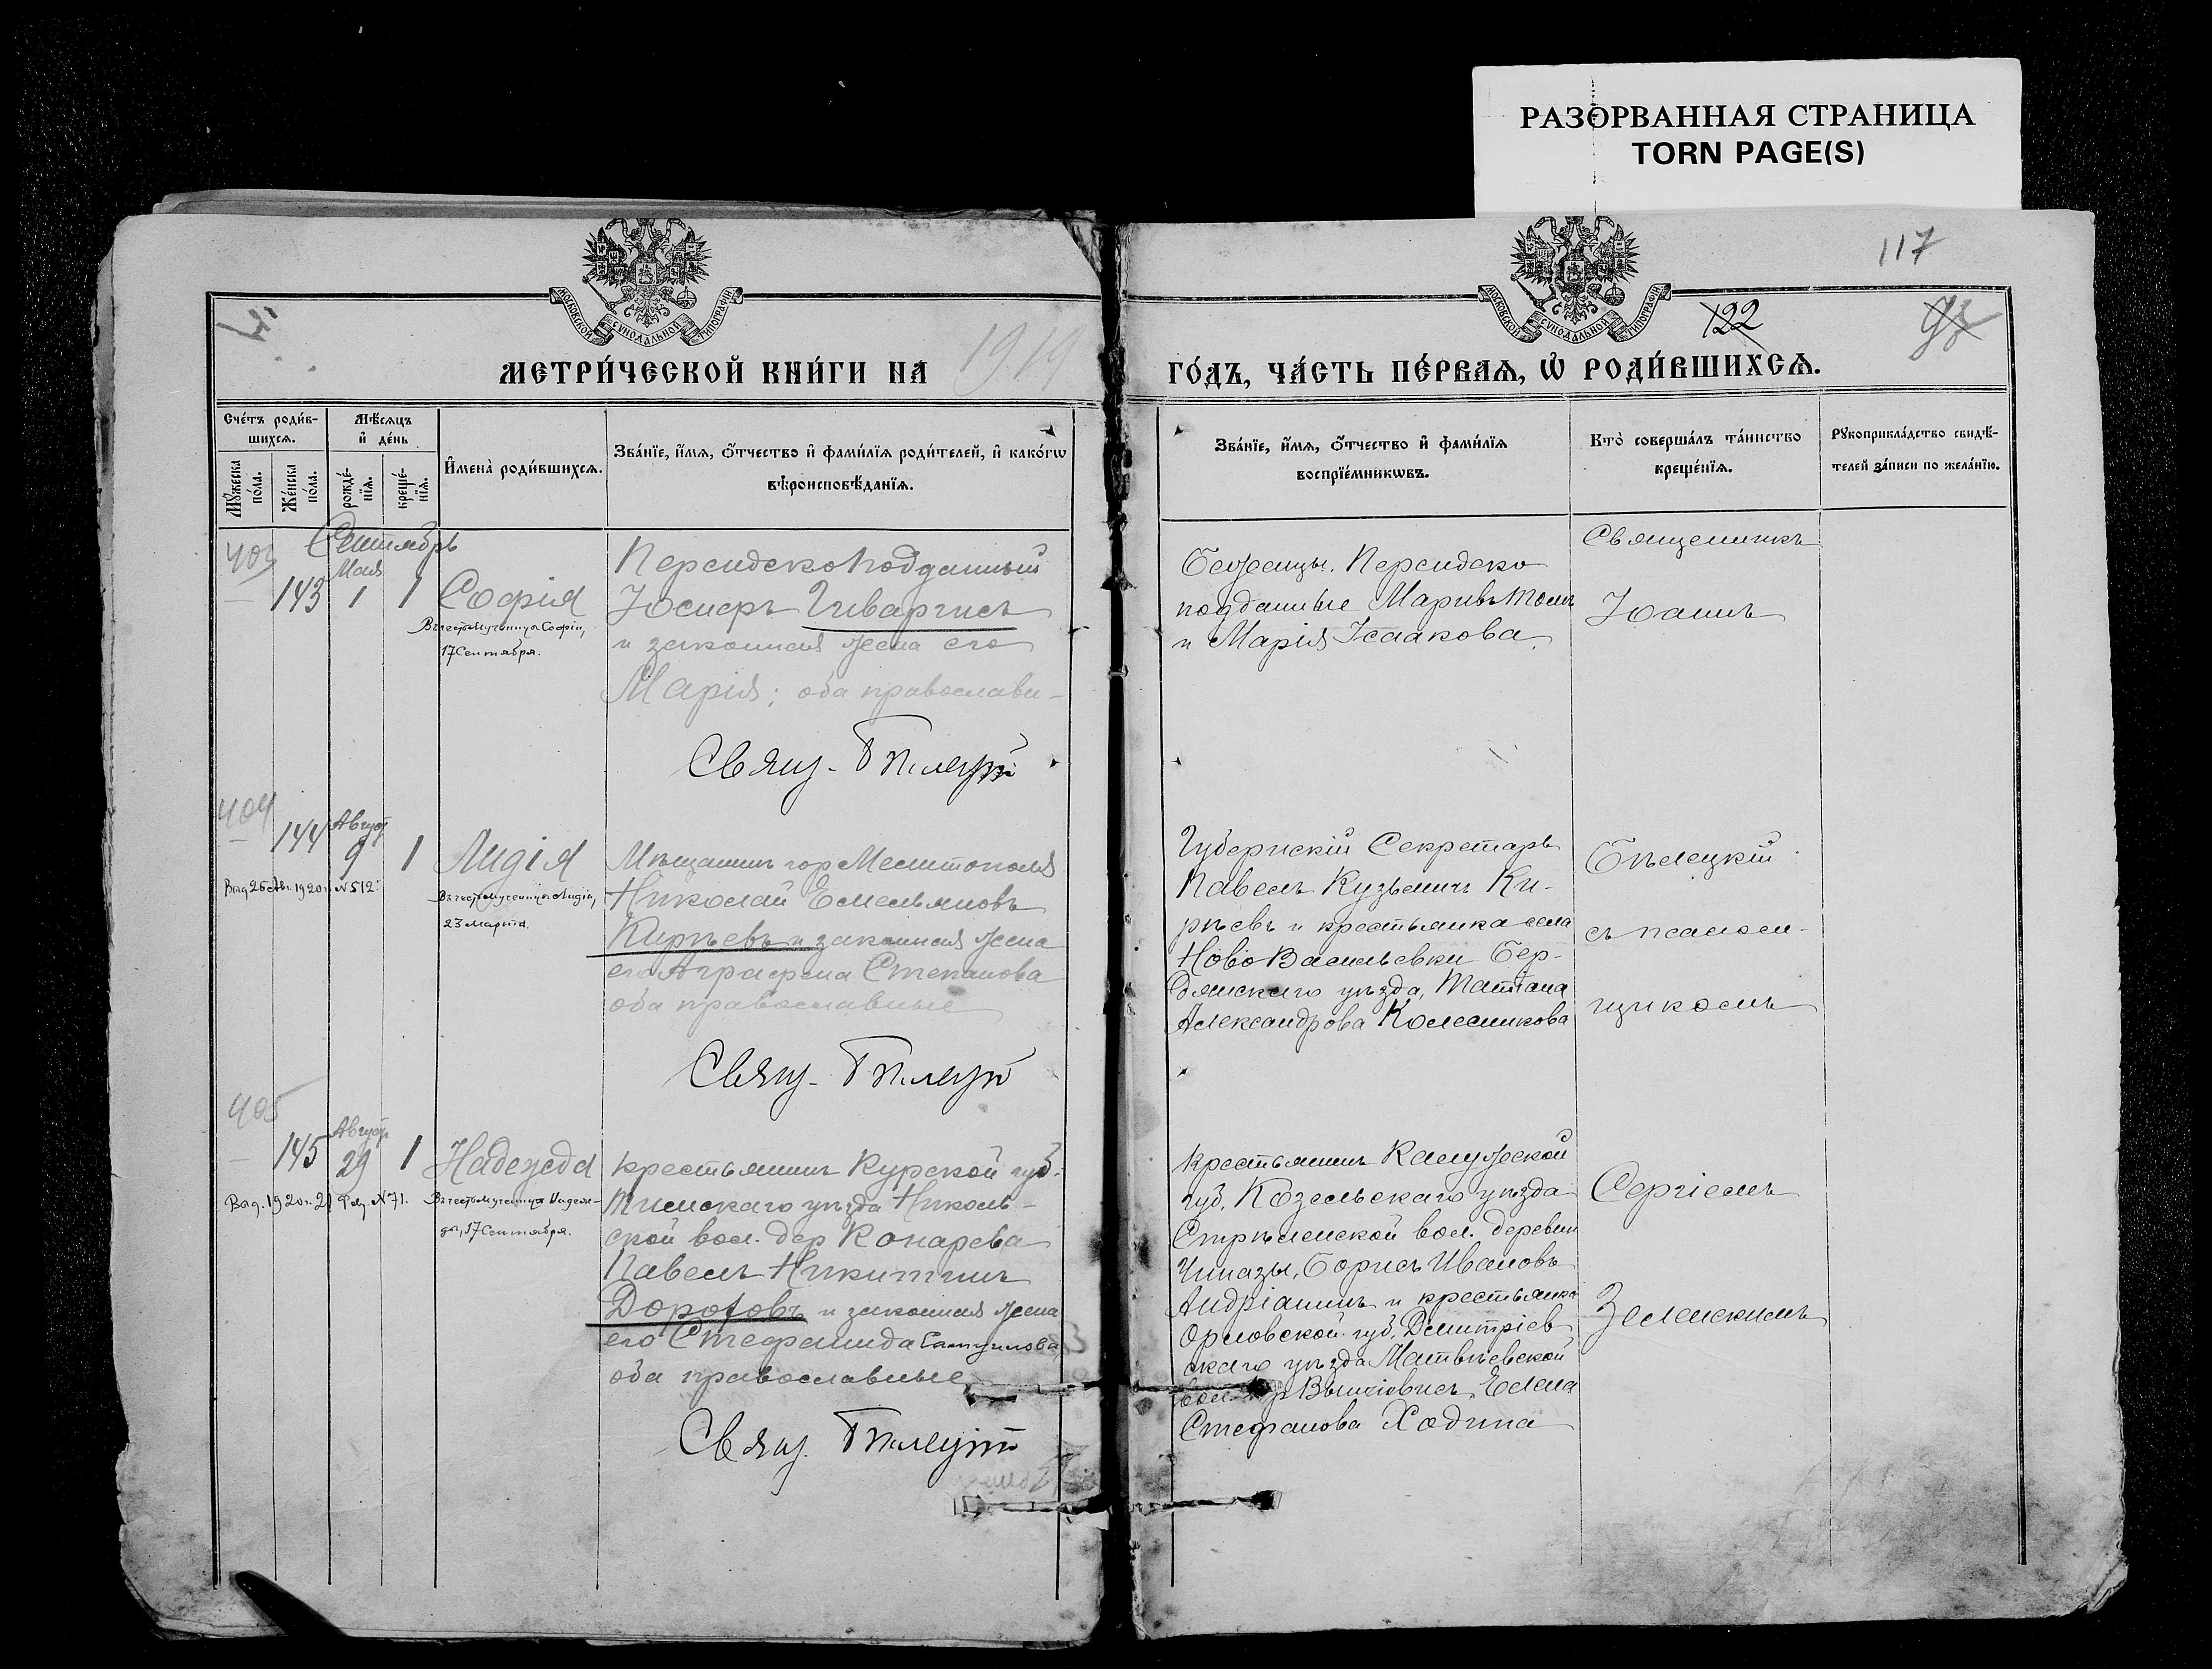 РАЗОРВАННАЯ СТРАНИЦА
TORN PAGE(S)
117
122
МОСКОВСКОЙ СѴНОДАЛЬНОЙ ТИПОГРАФІИ
МОСКОВСКОЙ СѴНОДАЛЬНОЙ ТИПОГРАФІИ
МЕТРИ́ЧЕСКОЙ КНИ́ГИ НА 1919
ГО́ДЪ, ЧА́СТЬ ПЕ́РВАЯ, Ѡ РОДИ́ВШИХСЯ.
Сче́тъ роди́в-
шихся.
Мѣ́сяцъ
и҆ де́нь
Му́жеска по́ла.
Же́нска по́ла.
рожде́-
нїя.
креще́-
нїя.
И҆мена̀ роди́вшихся.
Зва́нїе, и҆́мя, ѻ҆́тчество и҆ фами́лїя роди́телей, и҆ како́гѡ
вѣроисповѣ́данїя.
Зва́нїе, и҆́мя, ѻ҆́тчество и҆ фами́лїя
воспрїе́мникѡвъ.
Кто̀ соверша́лъ та́инство
креще́нїя.
Рꙋкоприкла́дство свидѣ́-
телей за́писи по жела́нїю.
Сентябрь
403
143
Мая
1
1
Софія
Въ честь Мученицы Софіи,
17 Сентября.
Персидскоподданный
Юсифъ Гиваргисъ
и законная жена его
Марія; оба православн-
Свящ. Бѣлецкій
Беженцы. Персидско
подданные
и Марія Исаакова
Священникъ
Іоаннъ
404
144
Август
9
1
Лидія
Выд 26 Авг. 1920 г. N 512
Въ честь Мученицы Лидіи,
23 Марта.
Мѣщанинъ гор Мелитополя
Николай Емельяновъ
Кирѣевъ и законная жена
его Аграфена Степанова
оба православные
Свящ. Бѣлецкій
Губернскій Секретарь
Павелъ Кузьмичъ Ки-
рѣевъ и крестьянка села
Ново Васильевки Бер-
дянскаго уѣзда, Татіана
Александрова Колесникова
Бѣлецкій
съ псалом-
щикомъ
405
145
Август
29
1
Надежда
Выд. 1920 г. 21 N 71.
Въ честь Мученицы Надеж-
ды, 17 Сентября.
крестьянинъ Курской губ.
Тимскаго уѣзда Николь-
ской вол. дер Конарева
Павелъ Никитинъ
Дороѳовъ и законная жена
его Стефанида
оба православные
Свящ. Бѣлецкій
крестьянинъ Калужской
губ. Козельскаго уѣзда
Стрѣленской вол. деревни
Борисъ Ивановъ
Андріанинъ и крестьянка
Орловской губ. Дмитріев
скаго уѣзда Матвѣевской
Елена
Стефанова Ходина
Сергіемъ
Зеленскимъ